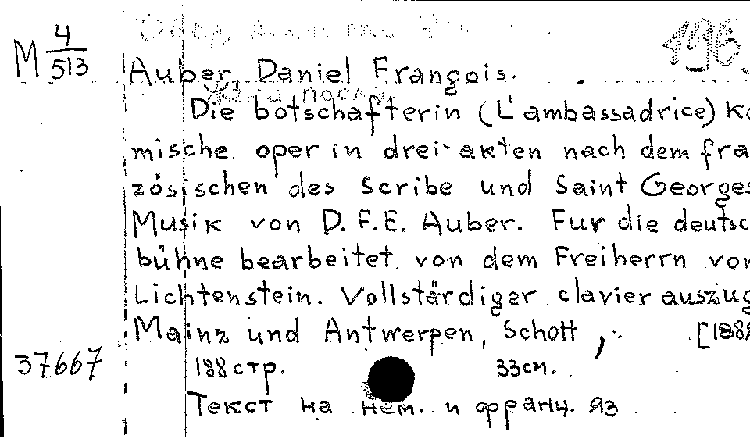 M 4/513
196
Auber, Daniel François.
Die botschafterin (L'ambassadrice) Ko
mische oper in drei akten nach dem fra
zösischen des Scribe und Saint Georges
Musik von D.F.E. Auber. Fur die deutsc
bühne bearbeitet von dem Freiherrn von
Lichtenstein. Vollstärdiger clavierauszug
Mainz und Antwerpen, Schott, [188
37667 188 стр. 33 см.
Текст на нем. и франц. яз